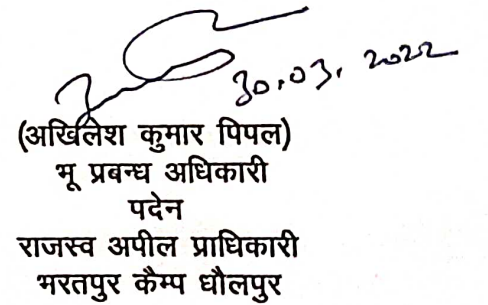 30.03.2022
(अखिलेश कुमार पिपल)
भू प्रबन्ध अधिकारी
पदेन
राजस्व अपील प्राधिकारी
भरतपुर कैम्प धौलपुर